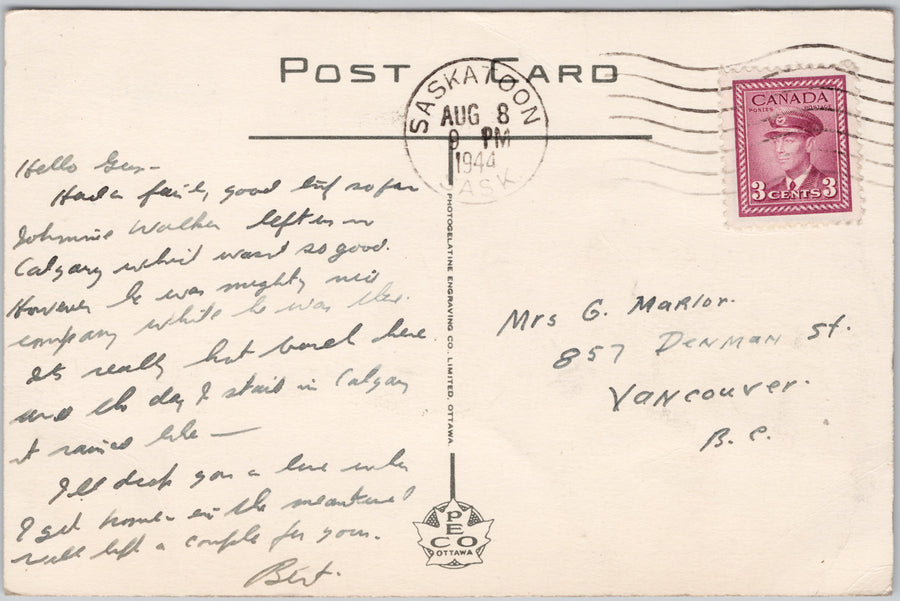 POST CARD
SASKATOON
AUG 8
9 PM
1944
SASK.
CANADA
POSTES POSTAGE
3 CENTS 3
Hello Gus-
Had a fairly good trip so far
Johnnie Walker left us in
Calgary which wasn't so good.
However he was mighty nice
company while he was there.
It's really hot here
and the day I staid in Calgary
it rained like —
I'll drop you a line when
I get home - in the meantime I
will lift a couple for you.
Bert.
PHOTOGELATINE ENGRAVING CO. LIMITED, OTTAWA
PECO
OTTAWA
Mrs G. Marlor.
857 Denman St.
Vancouver.
B.C.